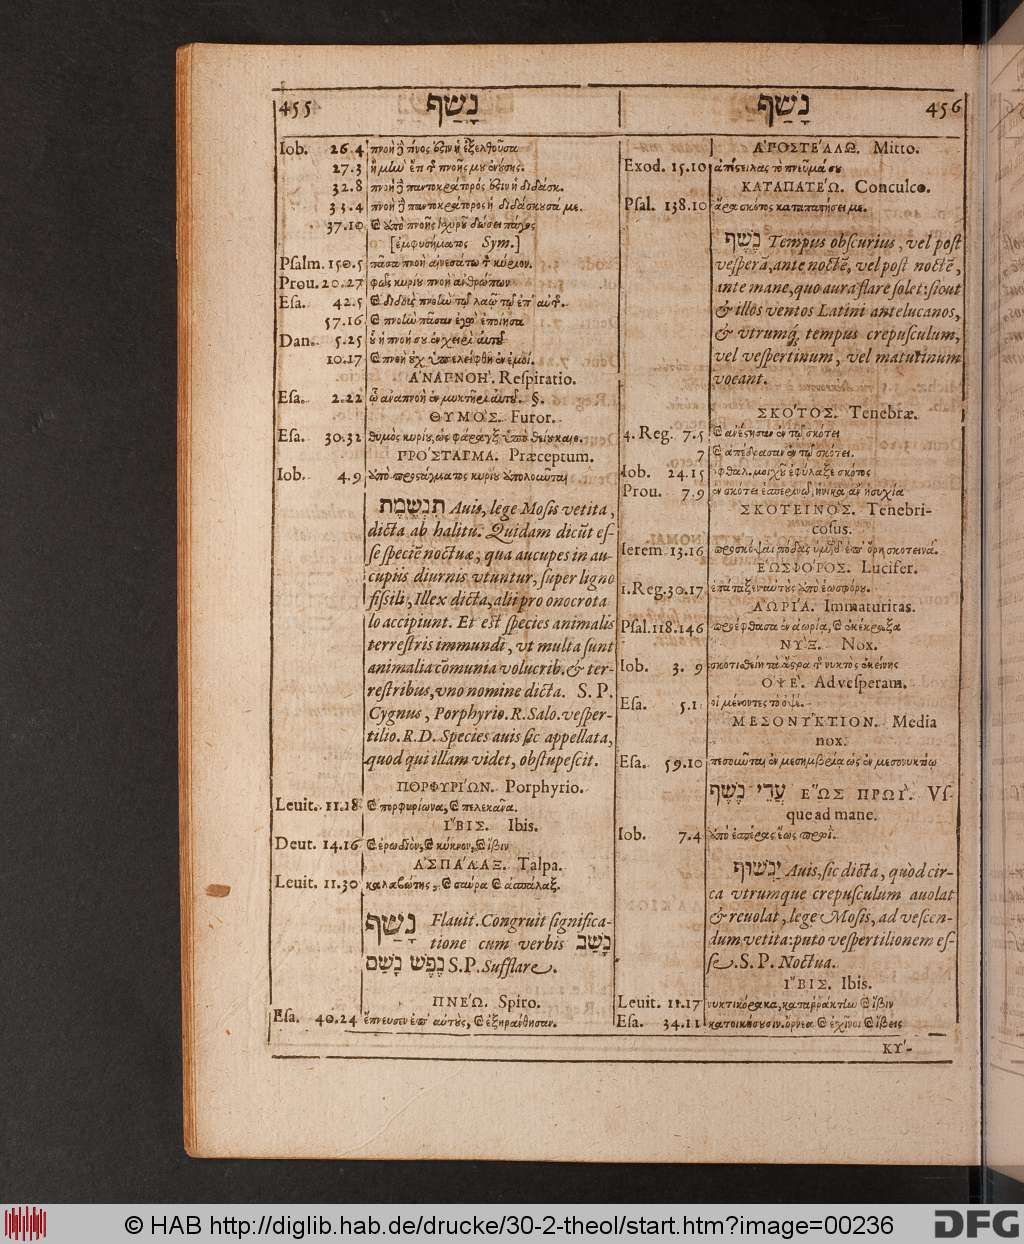 455 נָשַׁף
Iob. 26.4 πνοὴ ἢ τίνος ἐστιν ἡ ἐξελθοῦσα
27.3
32.8 πνοὴ ἢ παντοκράτορός ἐστιν ἡ διδάσκ.
33.4 πνοὴ ἢ παντοκράτορος ἡ διδάσκουσά με.
37.10 καὶ ἀπὸ πνοῆς ἰσχυροῦ δώσει πάγος
[ἐμφυσήματος Sym.]
Psalm. 150.5 πᾶσα πνοὴ αἰνεσάτω τ κύριον.
Prou. 20.27 φῶς κυρίου πνοὴ ἀνθρώπων
Esa. 42.5 καὶ διδοὺς πνοὴν τῷ λαῷ τῷ ἐπ' αὐτ.
57.16 καὶ πνοὴν πᾶσαν ἐγὼ ἐποίησα
Dan. 5.25
10.17 καὶ πνοὴ οὐχ ὑπελείφθη ἐν ἐμοί.
ἈΝΑΠΝΟΉ. Respiratio.
Esa. 2.22 ᾧ ἀναπνοὴ ἐν μυκτῆρι αὐτοῦ. §.
ΘΥΜΌΣ. Furor.
Esa. 30.32 θυμὸς κυρίου, ὡς φάραγξ ὑπὸ θείου καιο.
ΠΡΌΣΤΑΓΜΑ. Præceptum.
Iob. 4.9 ἀπὸ προστάγματος κυρίου ἀπολοῦνται
תִּנְשֶׁמֶת Auis, lege Mosis vetita,
dicta ab halitu. Quidam dicūt es-
se speciē noctuæ, qua aucupes in au-
cupiis diurnis vtuntur, super ligno
fissili, Illex dicta, alii pro onocrota
lo accipiunt. Et est species animalis
terrestris immundi, vt multa sunt
animalia cōmunia volucrib. & ter-
restribus, vno nomine dicta. S. P.
Cygnus, Porphyrio. R. Salo. vesper-
tilio. R. D. Species auis sic appellata,
quod qui illam videt, obstupescit.
ΠΟΡΦΥΡΊΩΝ. Porphyrio.
Leuit. 11.18 καὶ πορφυρίωνα, καὶ πελεκᾶνα.
ἾΒΙΣ. Ibis.
Deut. 14.16 καὶ ἐρωδιὸν, καὶ κύκνον, καὶ ἶβιν
ἈΣΠΆΛΑΞ. Talpa.
Leuit. 11.30 καλαβώτης, καὶ σαύρα καὶ ἀσπάλαξ.
נָשַׁף Flauit. Congruit significa-
tione cum verbis נָשַׁב
נֶפֶשׁ נָשַׁם S. P. Sufflare.
ΠΝΈΩ. Spiro.
Esa. 40.24 ἔπνευσεν ἐπ' αὐτοὺς, καὶ ἐξηράνθησαν.
נָשַׁף 456
ἈΠΟΣΤΈΛΛΩ. Mitto.
Exod. 15.10 ἀπέστειλας τὸ πνεῦμά σου
ΚΑΤΑΠΑΤΈΩ. Conculco.
Psal. 138.10 ἄρα σκότος καταπατήσει με.
נֶשֶׁף Tempus obscurius, vel post
vesperā, ante noctē, vel post noctē,
ante mane, quo aura flare solet: sicut
& illos ventos Latini antelucanos,
& vtrumq; tempus crepusculum,
vel vespertinum, vel matutinum
vocant.
ΣΚΌΤΟΣ. Tenebræ.
4. Reg. 7.5 καὶ ἀνέστησαν ἐν τῷ σκότει
7 καὶ ἀπέδρασαν ἐν τῷ σκότει.
Iob. 24.15 ὀφθαλ. μοιχοῦ ἐφύλαξε σκότος
Prou. 7.9 ἐν σκότει ἑσπερινῷ, ἡνίκα ἂν ἡσυχία
ΣΚΟΤΕΙΝΌΣ. Tenebri-
cosus.
Ierem. 13.16 προσκόψαι πόδας ὑμῶν ἐπ' ὄρη σκοτεινά.
ἙΩΣΦΌΡΟΣ. Lucifer.
1. Reg. 30.17 ἐπάταξεν αὐτοὺς ἀπὸ ἑωσφόρου.
ἈΩΡΊΑ. Immaturitas.
Psal. 118.146 προέφθασα ἐν ἀωρίᾳ, καὶ ἐκέκραξα
ΝΎΞ. Nox.
Iob. 3. 9 σκοτωθείη τὰ ἄστρα τ νυκτὸς ἐκείνης
ὈΨΈ. Ad vesperam.
Esa. 5.1 οἱ μένοντες τὸ ὀψέ.
ΜΕΣΟΝΎΚΤΙΟΝ. Media
nox.
Esa. 59.10 πεσοῦνται ἐν μεσημβρίᾳ ὡς ἐν μεσονυκτίῳ
עֲדֵי נֶשֶׁף ἝΩΣ ΠΡΩΪ́. Vs-
que ad mane.
Iob. 7.4 ἀπὸ ἑσπέρας ἕως πρωΐ.
יַנְשׁוּף Auis, sic dicta, quòd cir-
ca vtrumque crepusculum auolat
& reuolat, lege Mosis, ad vescen-
dum vetita: puto vespertilionem es-
se. S. P. Noctua.
ἾΒΙΣ. Ibis.
Leuit. 11.17 νυκτικόρακα, καταρράκτην καὶ ἶβιν
Esa. 34.11 κατοικήσουσιν. ὄρνεα καὶ ἐχῖνοι καὶ ἴβεις
ΚΎ-
© HAB http://diglib.hab.de/drucke/30-2-theol/start.htm?image=00236
DFG